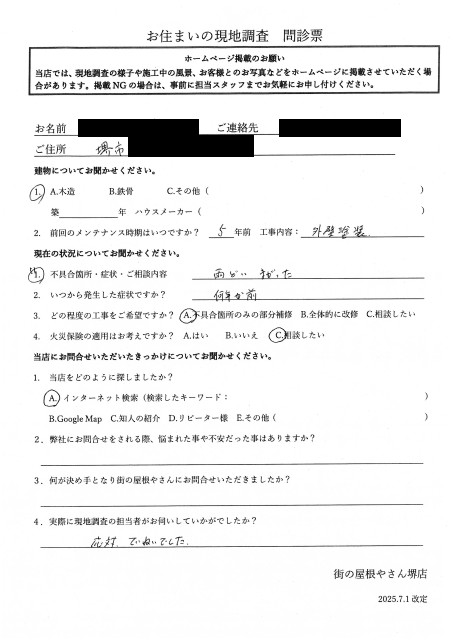 お住まいの現地調査 問診票
ホームページ掲載のお願い
当店では、現地調査の様子や施工中の風景、お客様とのお写真などをホームページに掲載させていただく場
合があります。掲載NGの場合は、事前に担当スタッフまでお気軽にお申し付けください。
お名前 ご連絡先
ご住所 堺市
建物についてお聞かせください。
1. A.木造 B.鉄骨 C.その他( )
築 年 ハウスメーカー( )
2. 前回のメンテナンス時期はいつですか? 5 年前 工事内容: 外壁塗装.
現在の状況についてお聞かせください。
1. 不具合箇所・症状・ご相談内容 雨どい まがった
2. いつから発生した症状ですか? 何年か前
3. どの程度の工事をご希望ですか? A.不具合箇所のみの部分補修 B.全体的に改修 C.相談したい
4. 火災保険の適用はお考えですか? A.はい B.いいえ C.相談したい
当店にお問合せいただいたきっかけについてお聞かせください。
1. 当店をどのように探しましたか?
A. インターネット検索(検索したキーワード: )
B.Google Map C.知人の紹介 D.リピーター様 E.その他( )
2. 弊社にお問合せをされる際、悩まれた事や不安だった事はありますか?
3. 何が決め手となり街の屋根やさんにお問合せいただきましたか?
4. 実際に現地調査の担当者がお伺いしていかがでしたか?
応対、ていねいでした.
街の屋根やさん堺店
2025.7.1 改定